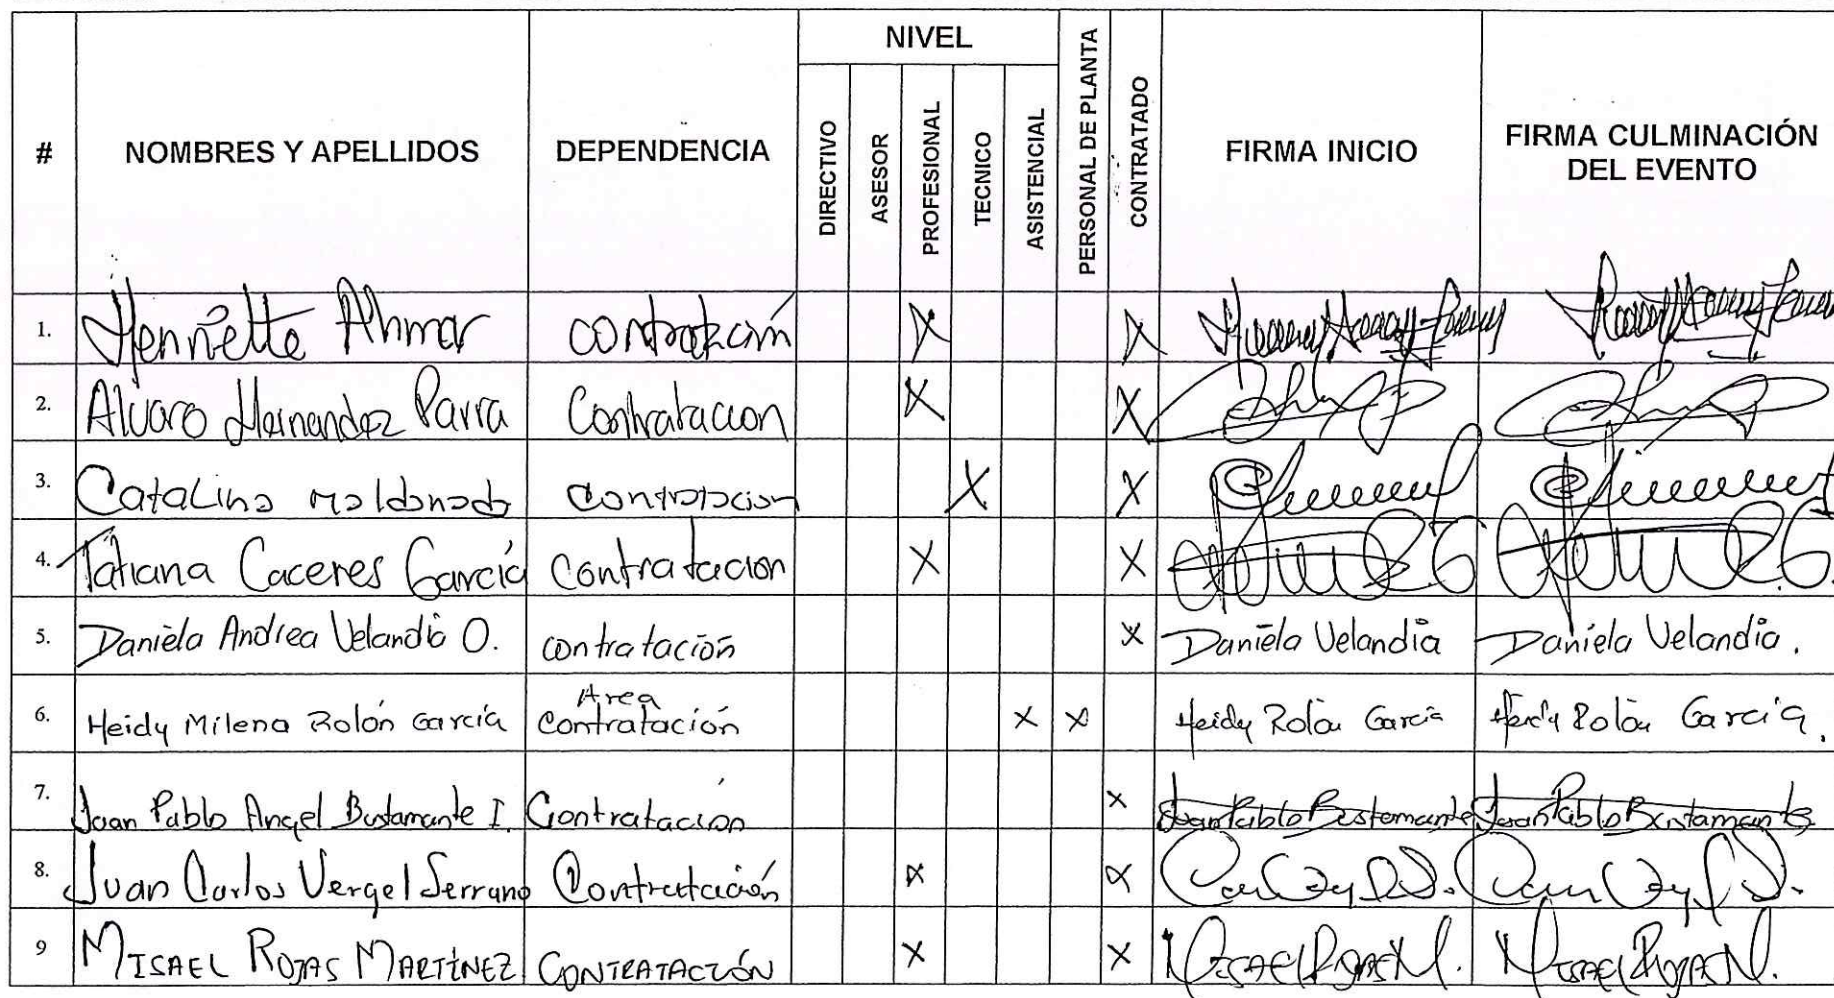 NIVEL
# NOMBRES Y APELLIDOS DEPENDENCIA DIRECTIVO ASESOR PROFESIONAL TECNICO ASISTENCIAL PERSONAL DE PLANTA CONTRATADO FIRMA INICIO FIRMA CULMINACIÓN
DEL EVENTO
1. Henriette Ahmar contratación X X
2. Alvaro Hernandez Parra Contratacion X X
3. Catalina maldonado contratacion X X
4. Tatiana Caceres García Contratacion X X
5. Daniela Andrea Velandia O. contratación X Daniela Velandia Daniela Velandia.
6. Heidy Milena Rolón García Area
Contratación X X Heidy Rolón García Heidy Rolón García.
7. Juan Pablo Angel Bustamante I. Contratacion X Juan Pablo Bustamante Juan Pablo Bustamante
8. Juan Carlos Vergel Serrano Contratación X X
9 MISAEL ROJAS MARTÍNEZ CONTRATACIÓN X X MISAEL ROJAS M. MISAEL ROJAS M.